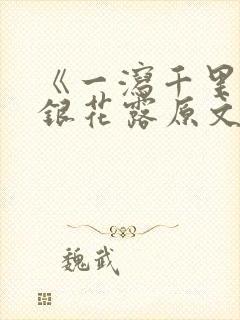 《一泻千里
银花露原文
魏武